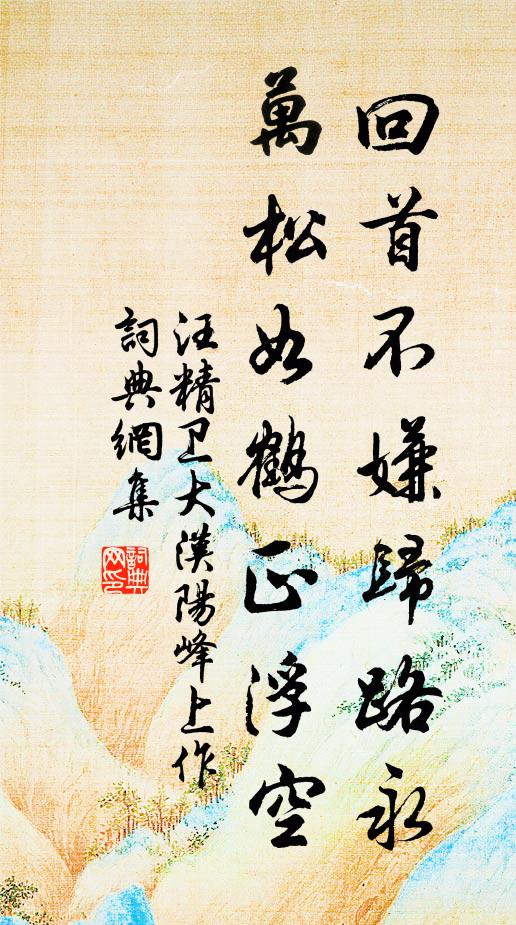 回首不嫌歸路永
萬松如鶴正浮空
汪精卫大漢陽峰上作
詞典網集
詞典网印